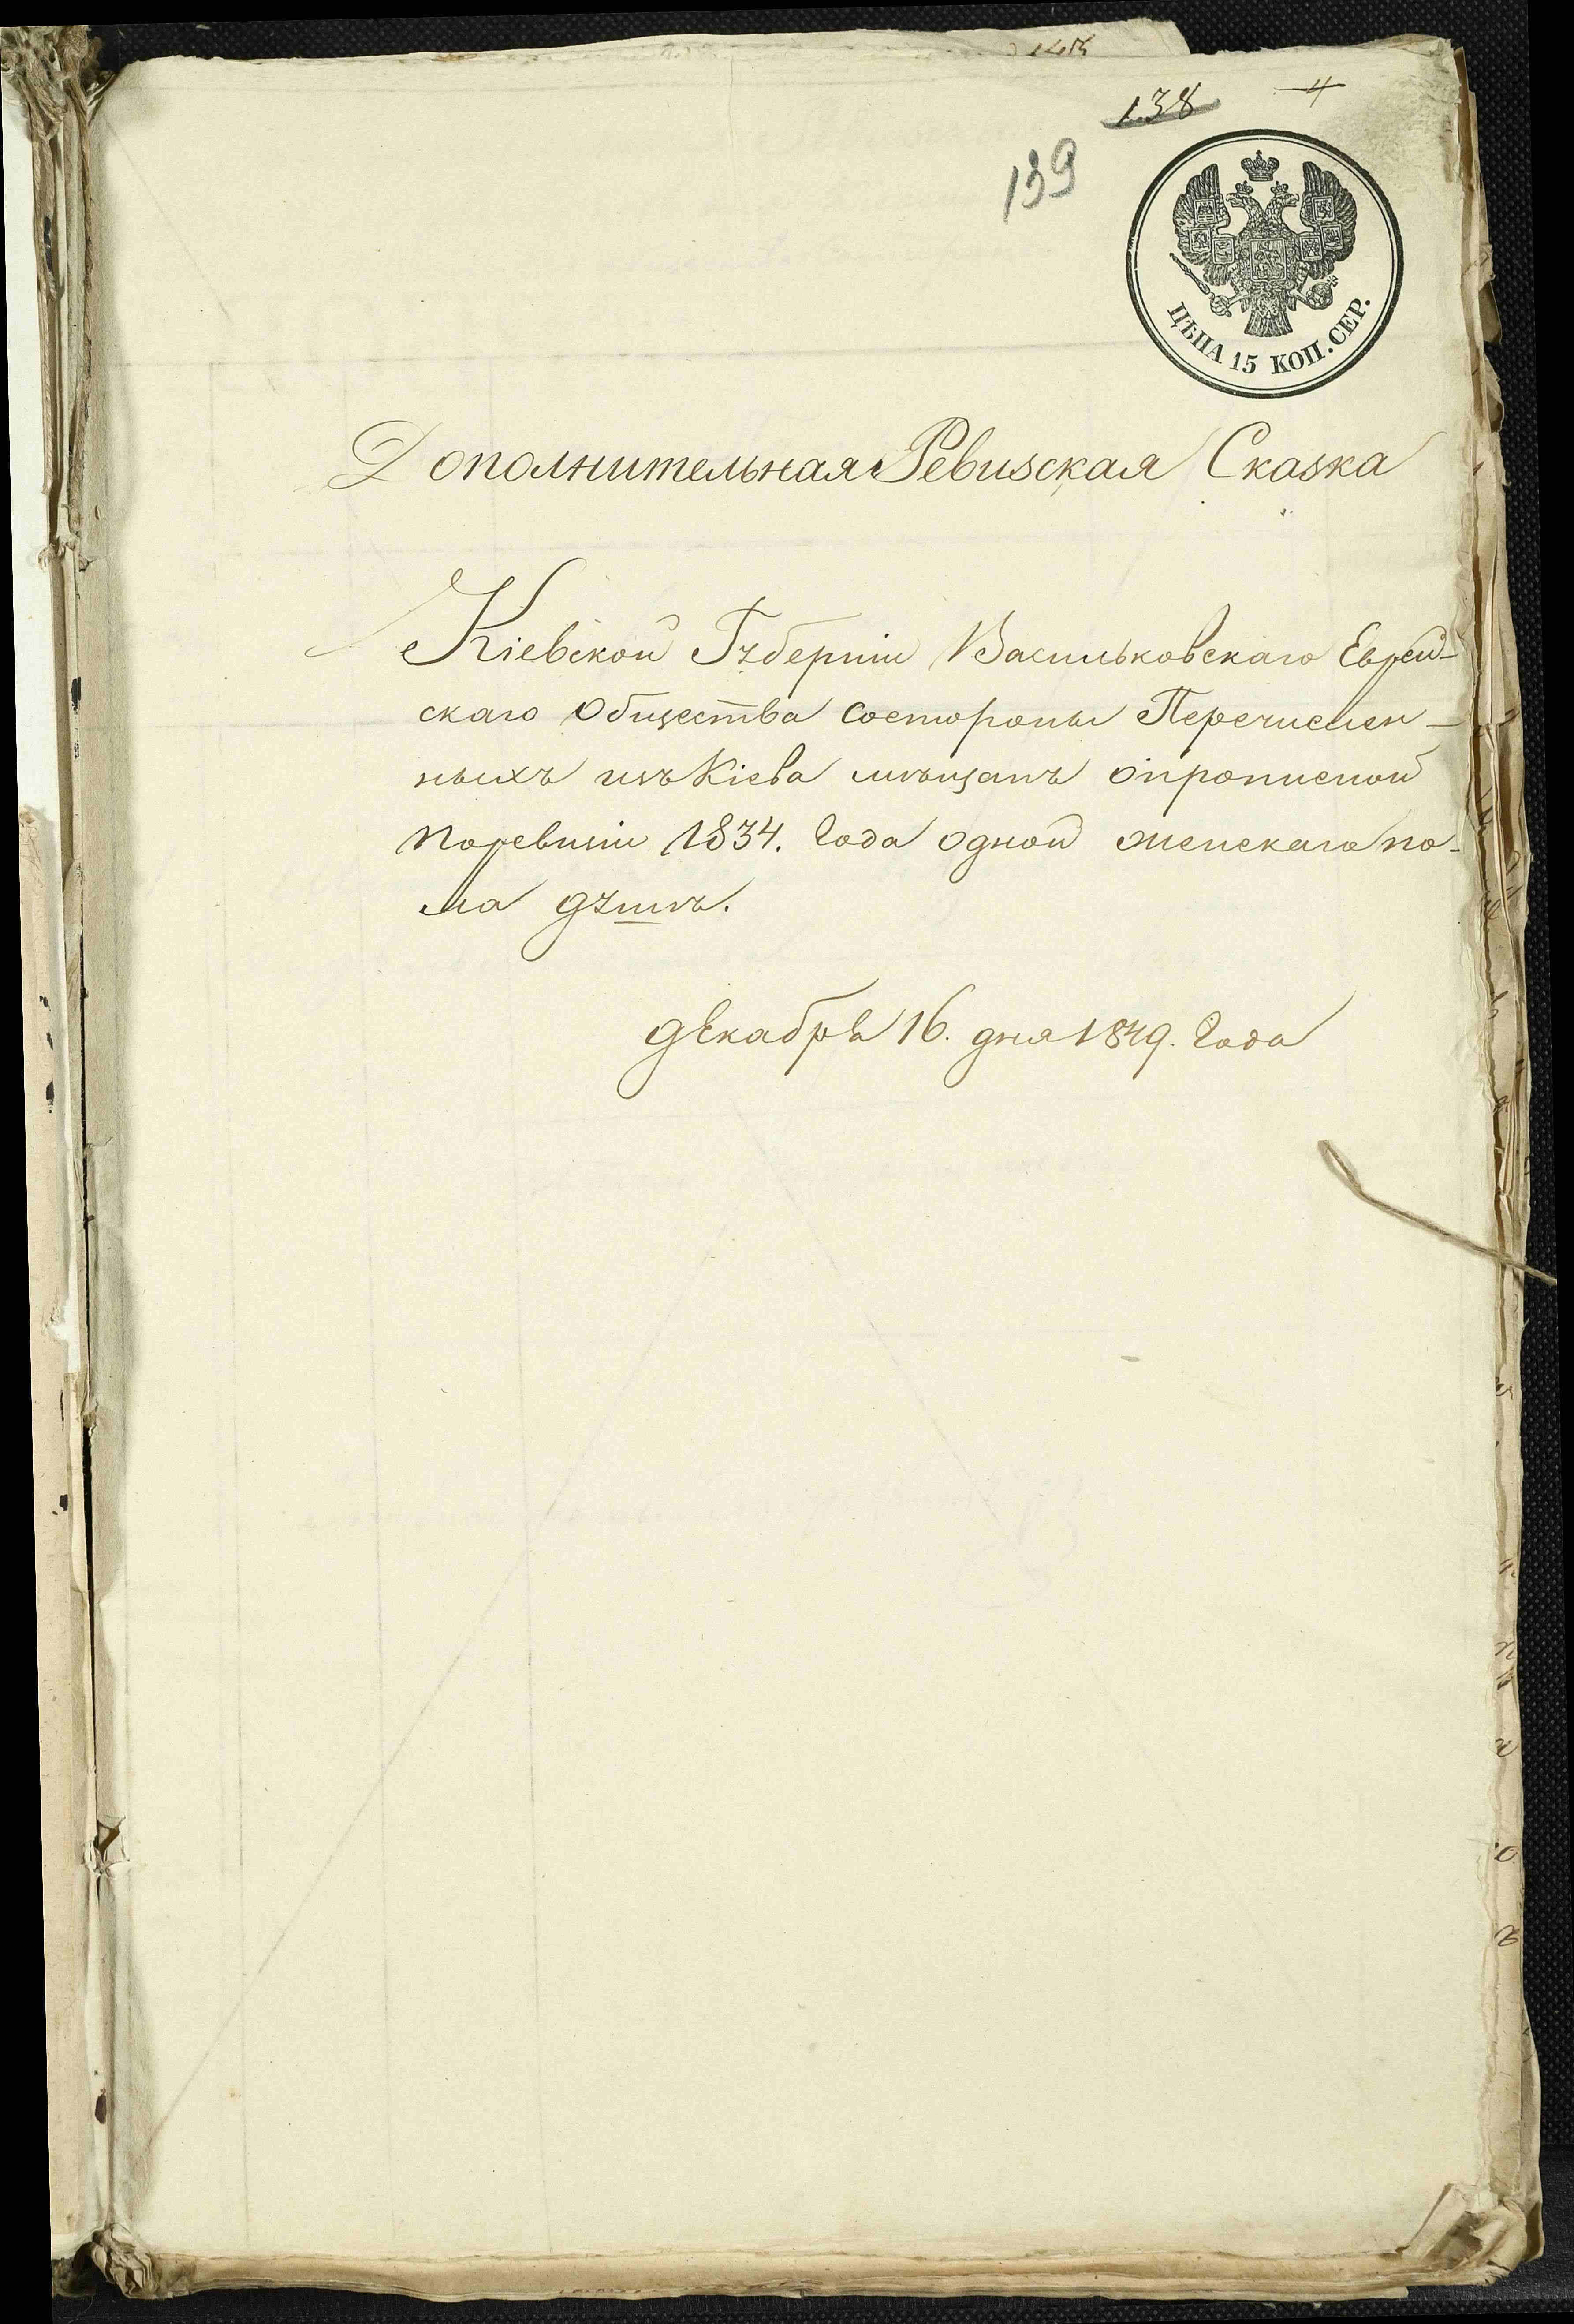 138 4
139
ЦѢНА 15 КОП. СЕР.
Дополнительная Ревизская Сказка
Кіевской Губерніи Васильковскаго Еврей-
скаго Общества состороны Перечислен-
ныхъ изъ Кіева мѣщанъ опрописной
поревизіи 1834. Года одной женскаго по-
ла душѣ.
декабря 16. дня 1849. Года